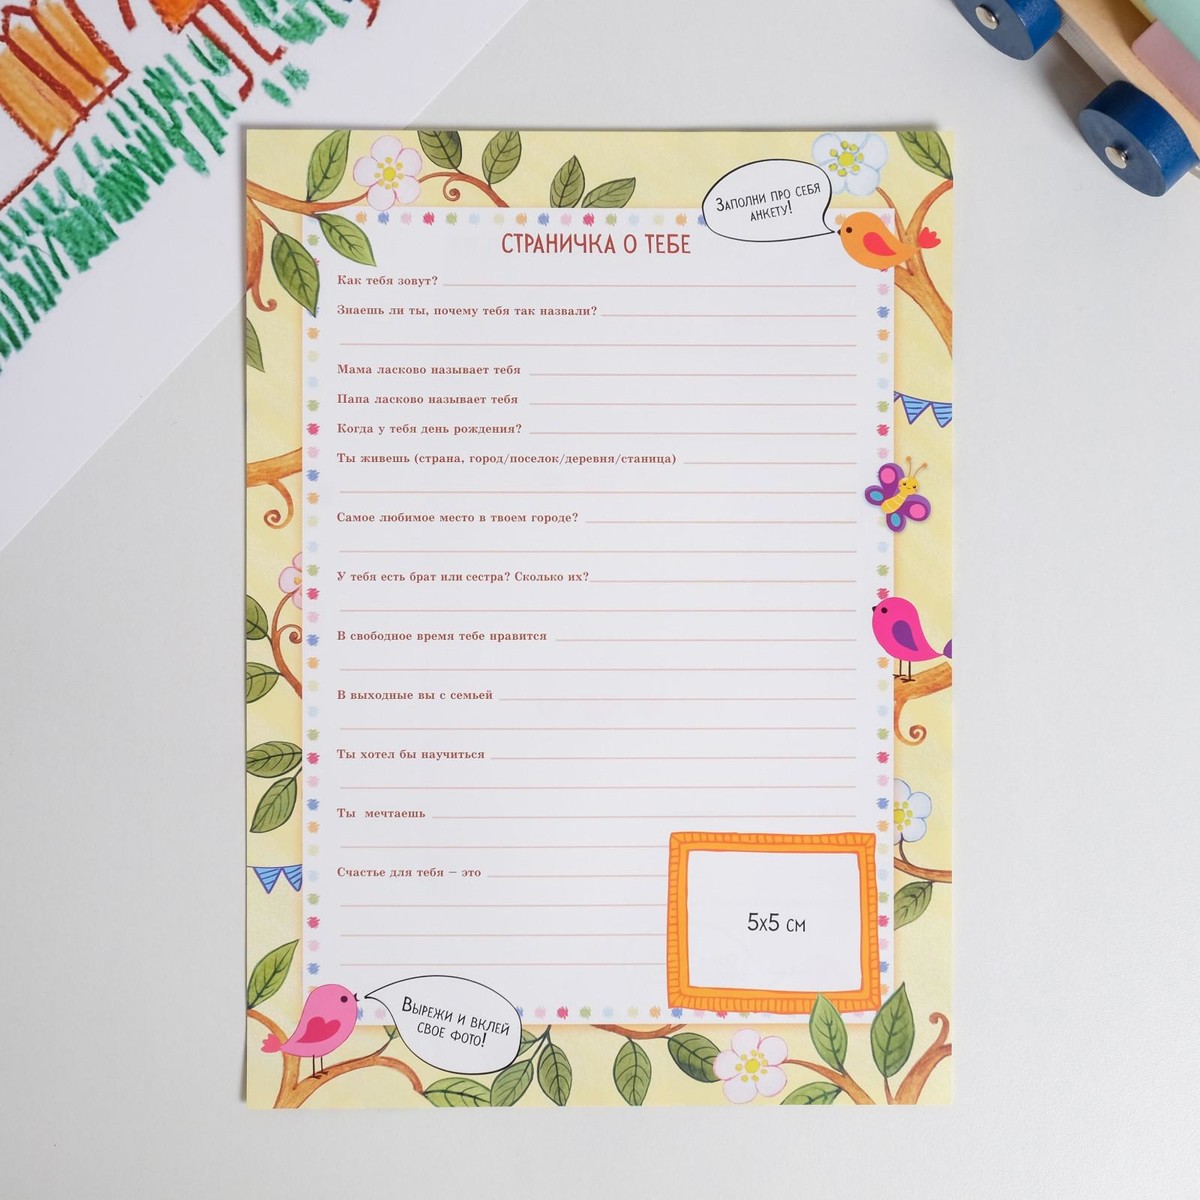 Заполни про себя
анкету!
СТРАНИЧКА О ТЕБЕ
Как тебя зовут?
Знаешь ли ты, почему тебя так назвали?
Мама ласково называет тебя
Папа ласково называет тебя
Когда у тебя день рождения?
Ты живешь (страна, город/поселок/деревня/станица)
Самое любимое место в твоем городе?
У тебя есть брат или сестра? Сколько их?
В свободное время тебе нравится
В выходные вы с семьей
Ты хотел бы научиться
Ты мечтаешь
Счастье для тебя – это
5х5 см
Вырежи и вклей
свое фото!